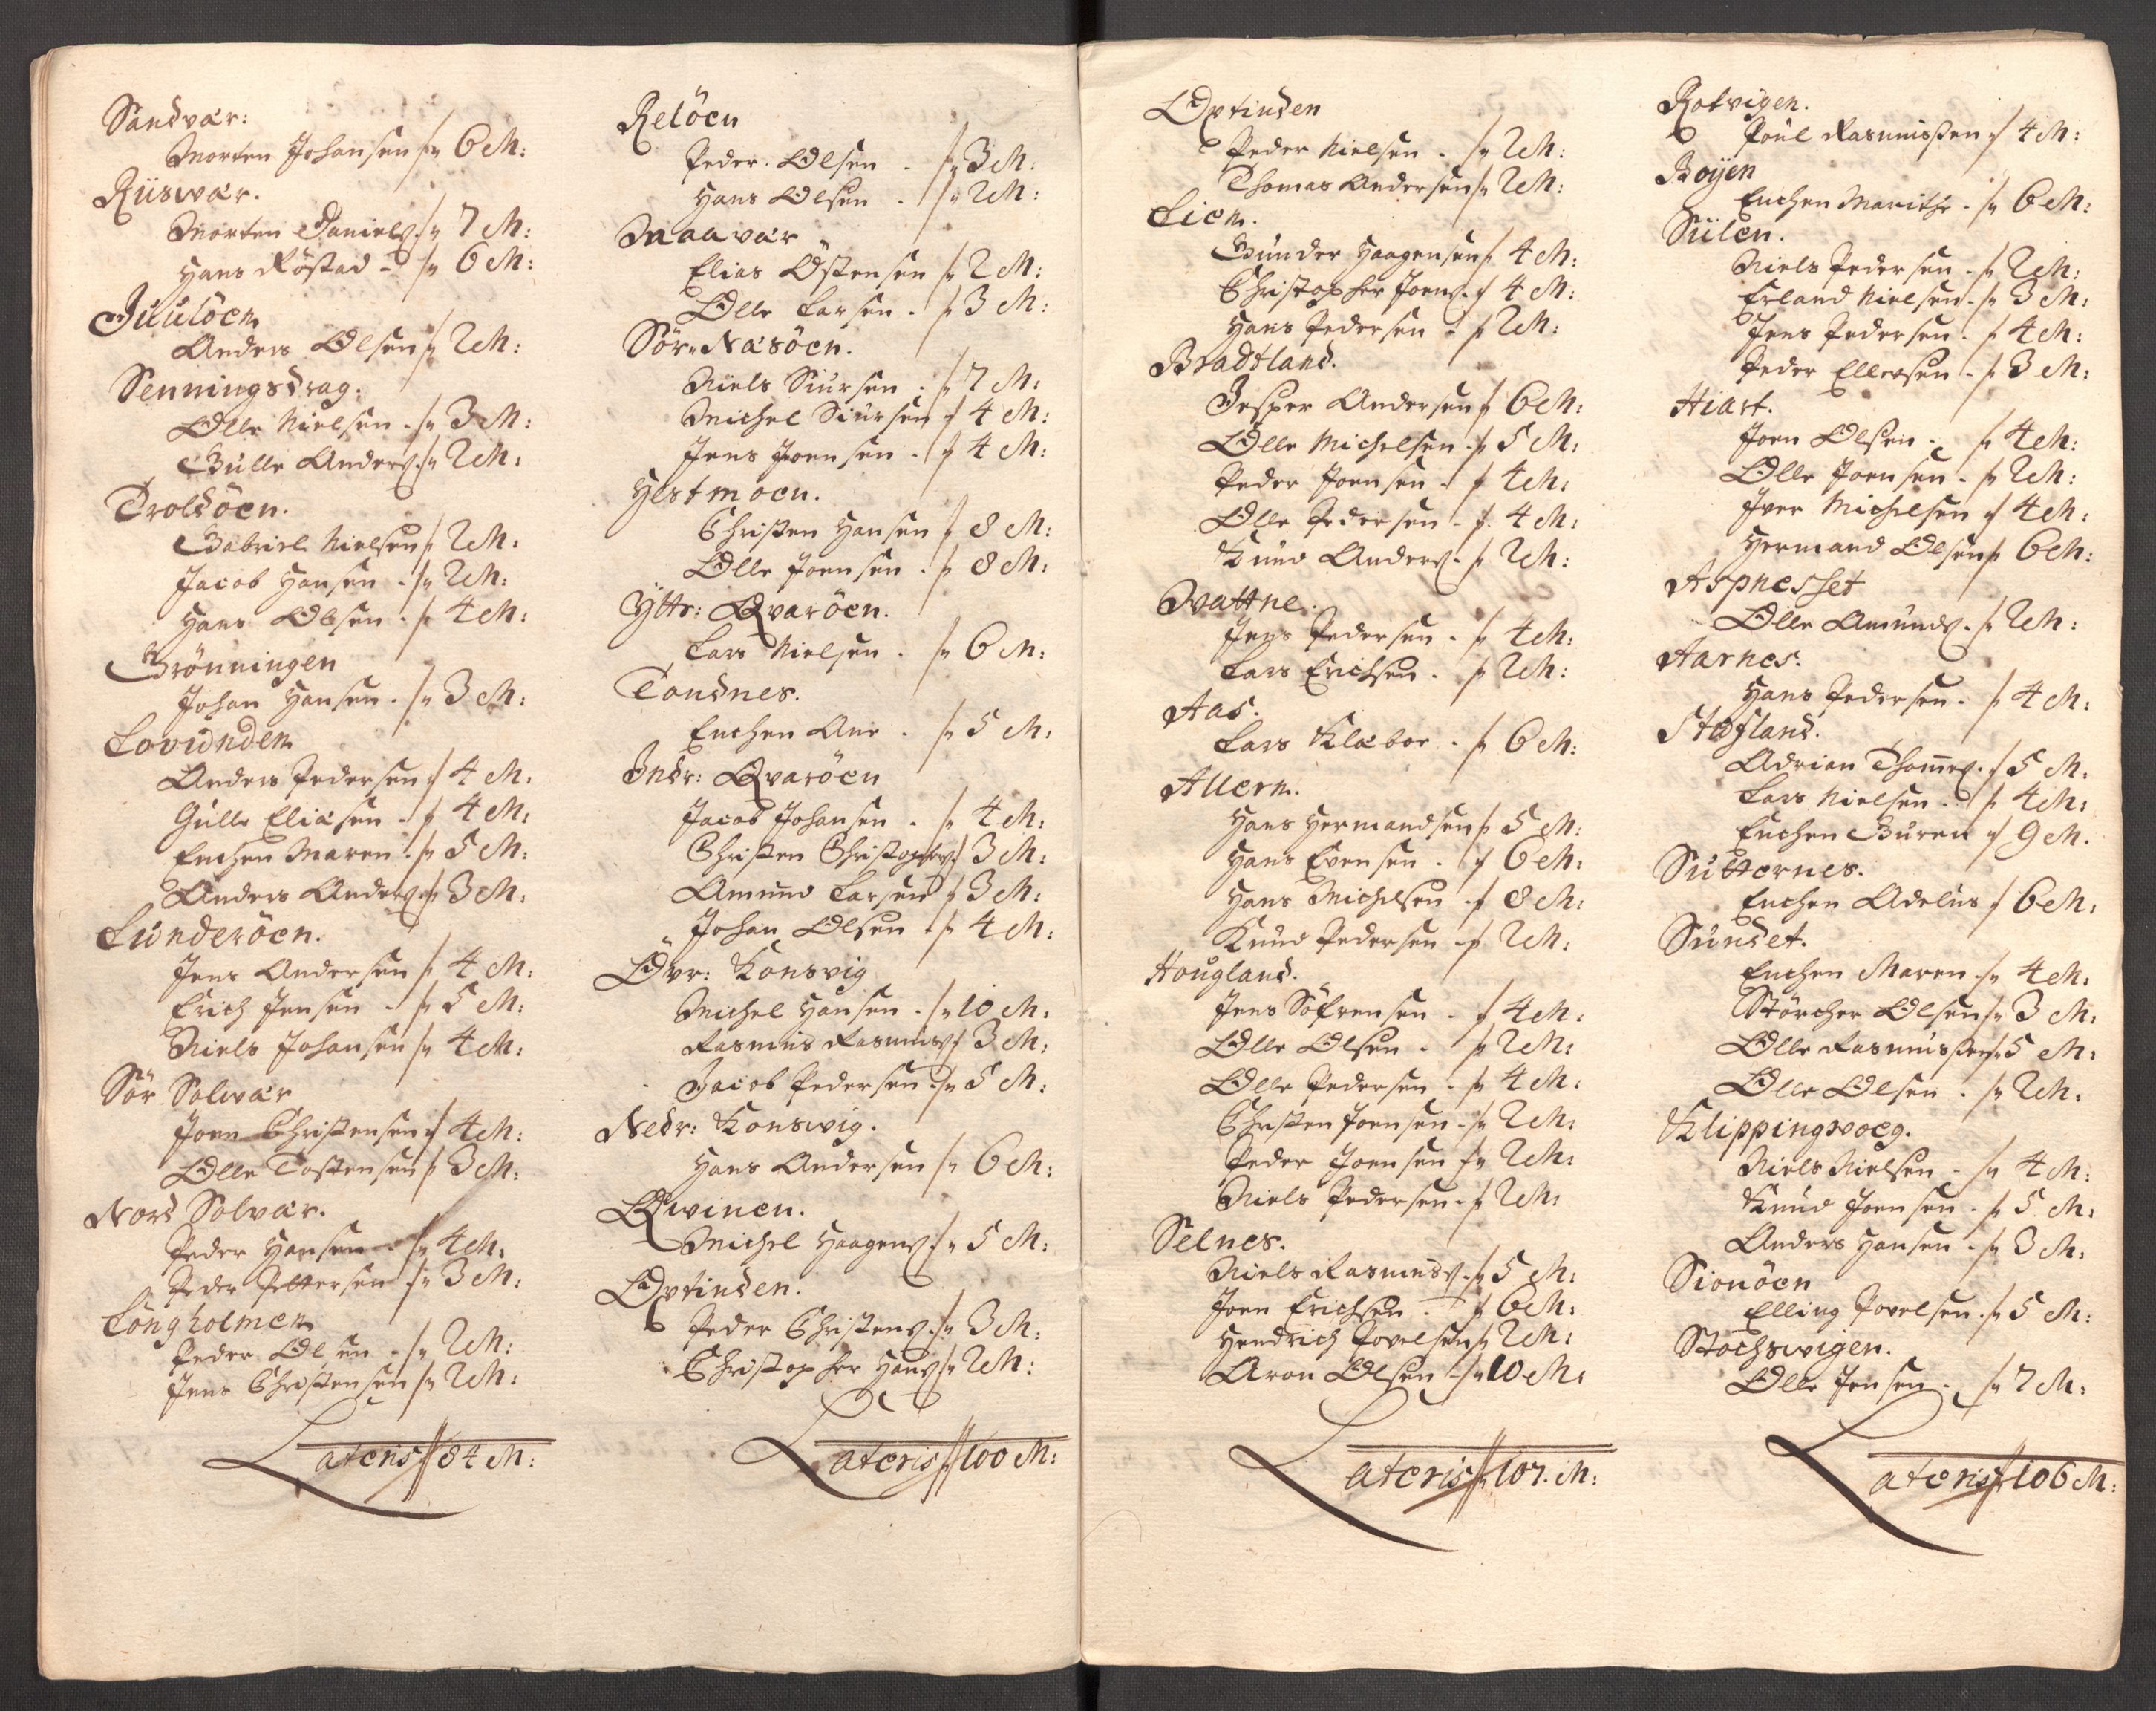 Sandvær:
Morten Johansen 6 M:
Riisvær.
Morten Daniels. 7 M:
Hans Röstad - 6 M:
Juulöen
Anders Olsen 2 M:
Senningsdrag:
Olle Nielsen - 3 M:
Gulle Anders. 2 M:
Troldöen.
Gabriel Nielsen 2 M:
Jacob Hansen - 2 M:
Hans Olsen - 4 M:
Grönningen
Johan Hansen - 3 M:
Lovunden
Anders Pedersen 4 M:
Gulle Eliasen - 4 M:
Enchen Maren - 5 M:
Anders Anders. 3 M:
Lunderöen.
Jens Andersen 4 M:
Erich Jensen - 5 M:
Niels Johansen 4 M:
Sör Solvær
Joen Christensen 4 M:
Olle Tostensen 3 M:
Nord Solvær.
Peder Hansen 4 M:
Peder Pettersen 3 M:
Longholmen
Peder Olsen - 2 M:
Jens Christensen 2 M:
Lateris 84 M:
Relöen
Peder Olsen - 3 M:
Hans Olsen - 2 M:
Maavær
Elias Östensen 2 M:
Olle Larsen - 3 M:
Sör Næsöen.
Niels Siursen - 7 M:
Michel Siursen 4 M:
Jens Joensen - 4 M:
Hestmoen.
Christen Hansen 8 M:
Olle Joensen - 8 M:
Ytter: Qvaröen.
Lars Nielsen - 6 M:
Tondnes.
Enchen Ane - 5 M:
Inder: Qvaröen
Jacob Johansen - 4 M:
Christen Christophers. 3 M:
Amund Larsen 3 M:
Johan Olsen - 4 M:
Övr: Konsvig
Michel Hansen - 10 M:
Rasmus Rasmuss. 3 M:
Jacob Pedersen - 5 M:
Nedr: Konsvig.
Hans Andersen 6 M:
Qvinen.
Michel Haagens. 5 M:
Öxtinden.
Peder Christens. 3 M:
Christopher Hans. 2 M:
Lateris 100 M:
Öxtinden
Peder Nielsen - 2 M:
Thomas Andersen 2 M:
Lien.
Gunder Haagensen 4 M:
Christopher Joens. 4 M:
Hans Pedersen - 2 M:
Bradtland.
Jesper Andersen 6 M:
Olle Michelsen - 5 M:
Peder Joensen - 4 M:
Olle Pedersen - 4 M:
Knud Anders. - 2 M:
Vattne.
Jens Pedersen - 4 M:
Lars Erichsen - 2 M:
Aas.
Lars Klæboe - 6 M:
Alleren.
Hans Hermandsen 5 M:
Hans Evensen - 6 M:
Hans Michelsen - 8 M:
Knud Pedersen - 2 M:
Hougland.
Jens Söfrensen - 4 M:
Olle Olsen - 2 M:
Olle Pedersen - 4 M:
Christen Joensen - 2 M:
Peder Joensen 2 M:
Niels Pedersen - 2 M:
Selnes.
Niels Rasmuss. 5 M:
Joen Erichsen - 6 M:
Hendrich Povelsen 2 M:
Aron Olsen - 10 M:
Lateris 107. M:
Rotvigen.
Poul Rasmussen 4 M:
Boyen
Enchen Marithe - 6 M:
Sülen.
Niels Pedersen - 2 M:
Erland Nielsen - 3 M:
Jens Pedersen - 4 M:
Peder Ellevsen - 3 M:
Hiart.
Joen Olsen - 4 M:
Olle Joensen - 2 M:
Iver Michelsen 4 M:
Hermand Olsen 6 M:
Aspnesset
Olle Amunds. 2 M:
Aarnes.
Hans Pedersen - 4 M:
Stafland.
Adrian Thomes. 5 M:
Lars Nielsen - 4 M:
Enchen Buren 9 M.
Sutternes.
Enchen Adelus 6 M:
Sundet.
Enchen Maren - 4 M:
Störcher Olsen 3 M:
Olle Rasmussen 5 M:
Olle Olsen - 2 M:
Klippingvoeg.
Niels Nielsen - 4 M:
Knud Joensen - 5 M:
Anders Hansen - 3 M:
Sionöen
Elling Povelsen - 5 M:
Stochsvigen.
Olle Jensen - 7 M:
Lateris 106 M: